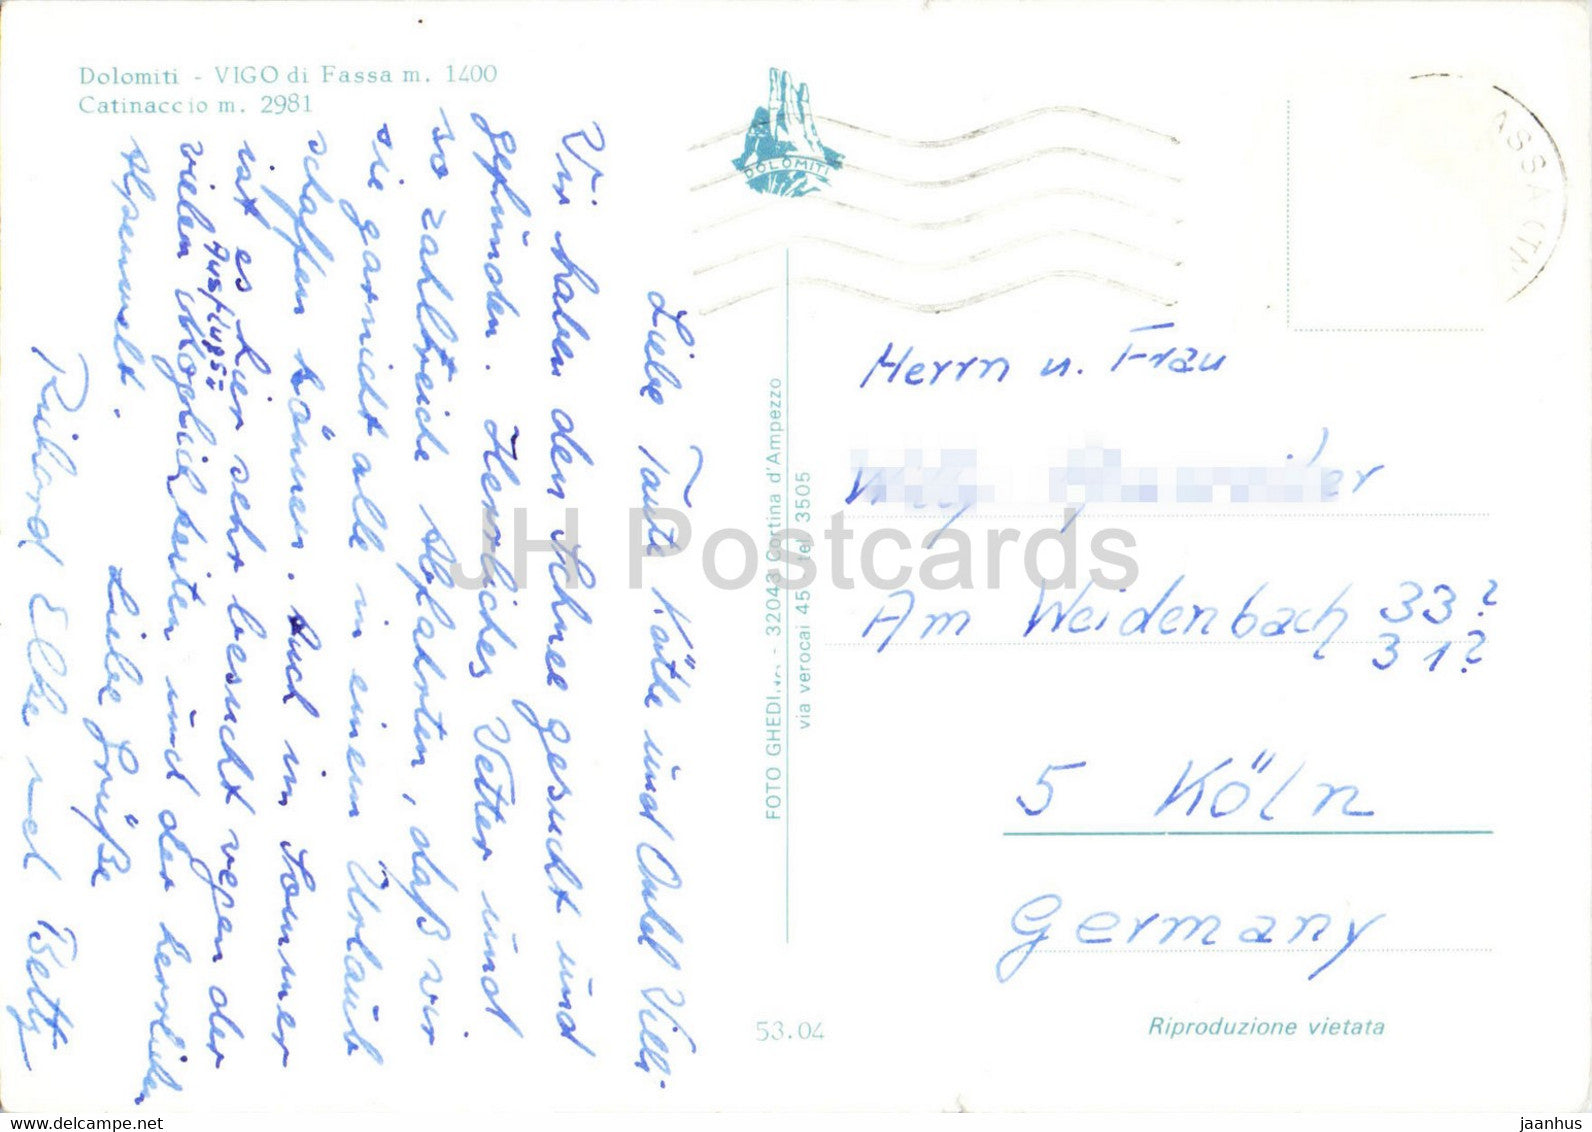 Dolomiti - VIGO di Fassa m. 1400
Catinaccio m. 2981
Liebe Tante Käthe und Onkel Willi
Wir haben den Schnee gesucht und
gefunden. Herrliches Wetter und
so zahlreiche Abfahrten, daß wir
sie garnicht alle in einem Urlaub
schaffen können. Auch im Sommer
ist es hier sehr besucht wegen der
vielen Ausflugs=
möglichkeiten und der herrlichen
Alpenwelt.
Liebe Grüße
Richard Elke und Betty
DOLOMITI
ASSA (TN
FOTO GHEDINA - 32043 Cortina d'Ampezzo
via verocai 45 tel 3505
Herrn u. Frau
Am Weidenbach 33?
31?
5 Köln
Germany
53.04
Riproduzione vietata
JH Postcards
www.delcampe.net
jaanhus